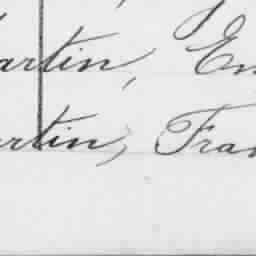 artin, Em
artin, Fran